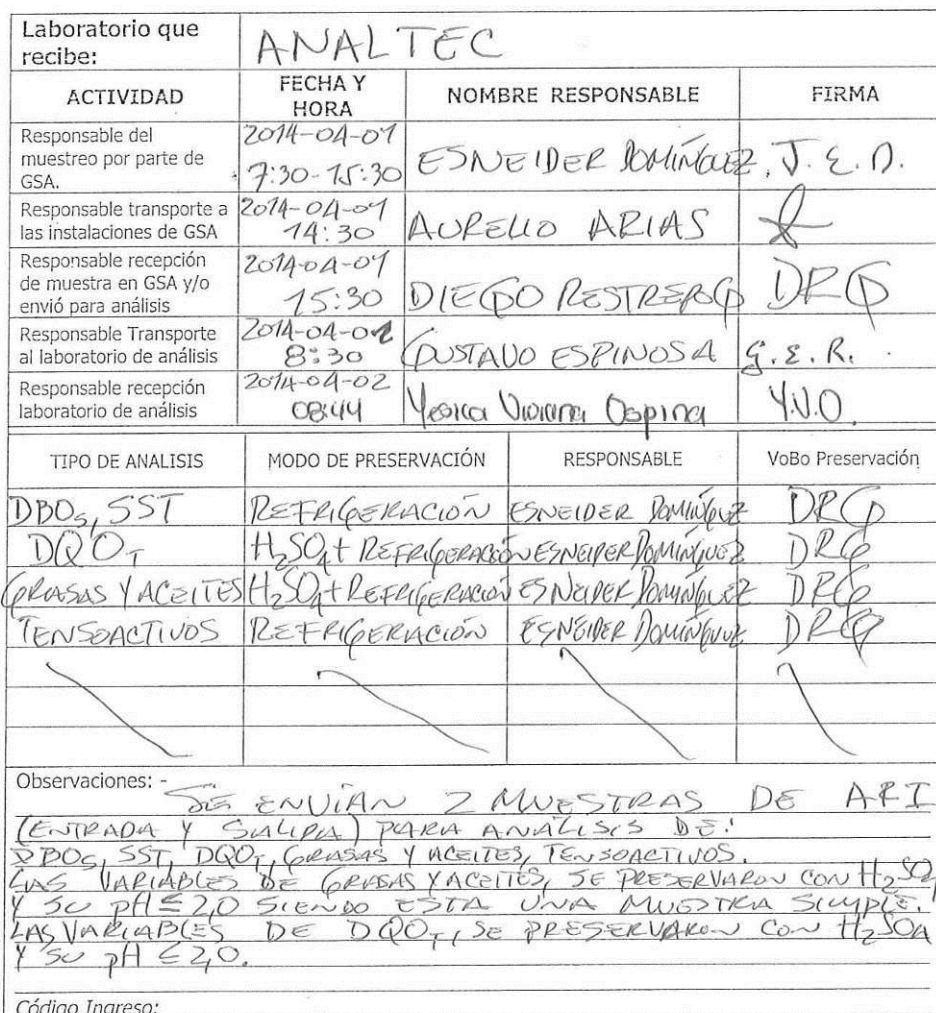 Laboratorio que recibe: ANALTEC
ACTIVIDAD FECHA Y HORA NOMBRE RESPONSABLE FIRMA
Responsable del muestreo por parte de GSA. 2014-04-01 7:30-15:30 ESNEIDER DOMÍNGUEZ. J.E.D.
Responsable transporte a las instalaciones de GSA 2014-04-01 14:30 AURELIO ARIAS
Responsable recepción de muestra en GSA y/o envió para análisis 2014-04-01 15:30 DIEGO RESTREPO G DRG
Responsable Transporte al laboratorio de análisis 2014-04-02 8:30 GUSTAVO ESPINOSA G.E.R.
Responsable recepción laboratorio de análisis 2014-04-02 08:44 Yesica Viviana Ospina Y.V.O
TIPO DE ANALISIS MODO DE PRESERVACIÓN RESPONSABLE VoBo Preservación
DBO5, SST REFRIGERACIÓN ESNEIDER DOMÍNGUEZ DRG
DQOT H2SO4+ REFRIGERACIÓN ESNEIDER DOMÍNGUEZ DRG
GRASAS Y ACEITES H2SO4+ REFRIGERACIÓN ESNEIDER DOMÍNGUEZ DRG
TENSOACTIVOS REFRIGERACIÓN ESNEIDER DOMÍNGUEZ DRG
Observaciones: -
SE ENVÍAN 2 MUESTRAS DE ARI
(ENTRADA Y SALIDA) PARA ANÁLISIS DE:
DBO5, SST, DQOT, GRASAS Y ACEITES, TENSOACTIVOS.
LAS VARIABLES DE GRASAS Y ACEITES, SE PRESERVARON CON H2SO4
Y SU pH ≤ 2,0 SIENDO ESTA UNA MUESTRA SIMPLE.
LAS VARIABLES DE DQOT, SE PRESERVARON CON H2SO4
Y SU pH ≤ 2,0.
Código Ingreso: